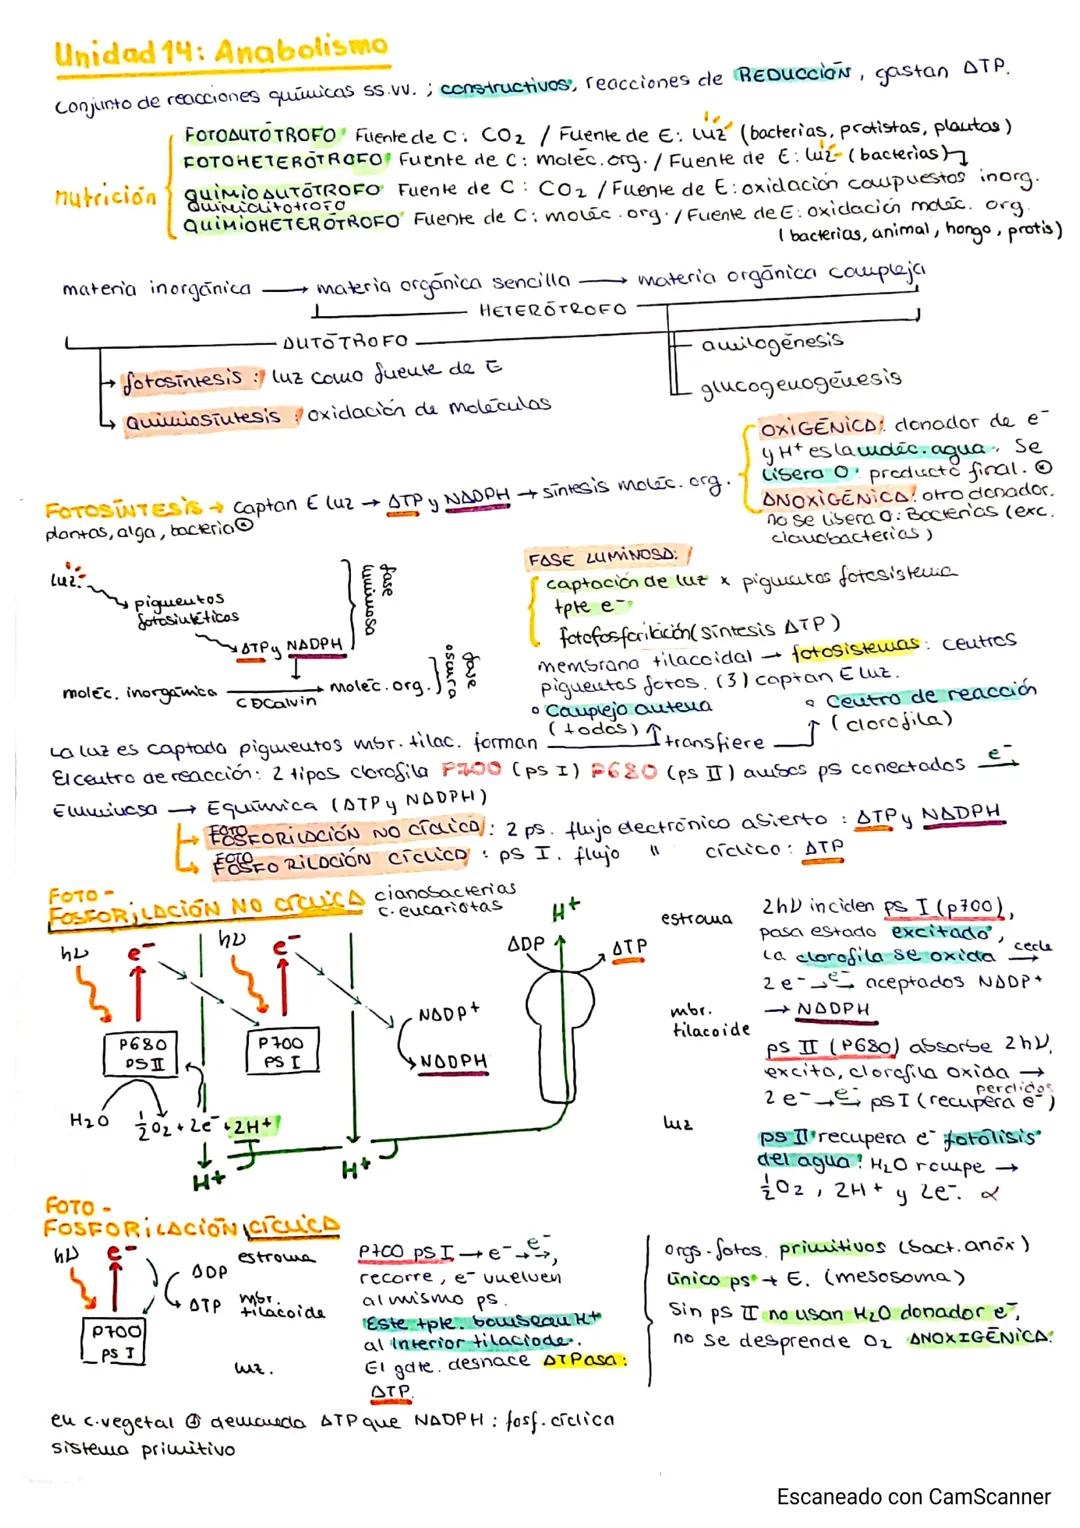 Unidad 14: Anabolismo
Conjunto de reacciones químicas ss.vv. ; constructivos, reacciones de REDUCCIÓN, gastan ATP.
nutrición
FOTOAUTÓTROFO Fuente de C: CO2 / Fuente de E: luz (bacterias, protistas, plantas)
FOTOHETERÓTROFO Fuente de C: moléc. org. / Fuente de E: luz (bacterias)
QUIMIOAUTÓTROFO Fuente de C: CO2 / Fuente de E: oxidación compuestos inorg.
Quimiolitotrofo
QUIMIOHETERÓTROFO Fuente de C: moléc. org. / Fuente de E: oxidación moléc. org.
(bacterias, animal, hongo, protis)
materia inorgánica → materia orgánica sencilla → materia orgánica compleja
HETERÓTROFO
AUTÓTROFO
amilogénesis
glucogenogénesis
fotosíntesis: luz como fuente de E
Quimiosíntesis: oxidación de moléculas
OXIGÉNICA: donador de e-
y H+ es la moléc. agua. Se
libera O: producto final.
ANOXIGÉNICA: otro donador.
no se libera O: Bacterias (exc.
cianobacterias)
FOTOSÍNTESIS → captan E luz → ATP y NADPH → síntesis moléc. org.
plantas, alga, bacteria
luz
pigmentos
fotosintéticos
ATP y NADPH
fase
luminosa
moléc. inorgánica → moléc. org.
C⊃Calvin
fase
oscura
FASE LUMINOSA:
captación de luz x pigmentos fotosistema
tpte e-
fotofosforilación (síntesis ATP)
membrana tilacoidal → fotosistemas: centros
pigmentos fotos. (3) captan E luz.
• Complejo antena
(todos)
• Centro de reacción
(clorofila)
transfiere
La luz es captada pigmentos mbr. tilac. forman
El centro de reacción: 2 tipos clorofila P700 (PS I) P680 (PS II) ambos ps conectados e-→
E luminosa → E química (ATP y NADPH)
FOTO
FOSFORILACIÓN NO CÍCLICA: 2 ps. flujo electrónico abierto: ATP y NADPH
FOTO
FOSFORILACIÓN CÍCLICO: ps I. flujo " cíclico: ATP
FOTO-
FOSFORILACIÓN NO CÍCLICA
cianobacterias
c. eucariotas
hν
e-
hν
e-
P680
PS II
P700
PS I
NADP+
NADPH
H2O
½O2 + 2e- + 2H+
H+
H+
H+
ADP
ATP
estroma
mbr.
tilacoide
luz
2hν inciden ps I (p700),
pasa estado excitado,
la clorofila se oxida cede →
2e- → e-→ aceptados NADP+
→ NADPH
ps II (P680) absorbe 2hν,
excita, clorofila oxida →
2e- → e-→ ps I (recupera e- perdidos)
ps II recupera e- fotólisis
del agua: H2O rompe →
½O2, 2H+ y 2e-.
FOTO-
FOSFORILACIÓN CÍCLICA
hν
e-
ADP
ATP
P700
PS I
estroma
mbr.
tilacoide
luz.
P700 PS I → e- → e-→,
recorre, e- vuelven
al mismo ps.
Este tpte. bombean H+
al interior tilacoide.
El gdte. desnace ATPasa:
ATP.
orgs. fotos. primitivos (bact. anox)
único ps → E. (mesosoma)
Sin ps II no usan H2O donador e-,
no se desprende O2 ANOXIGÉNICA.
en c. vegetal ⊕ demanda ATP que NADPH: fosf. cíclica
sistema primitivo
Escaneado con CamScanner